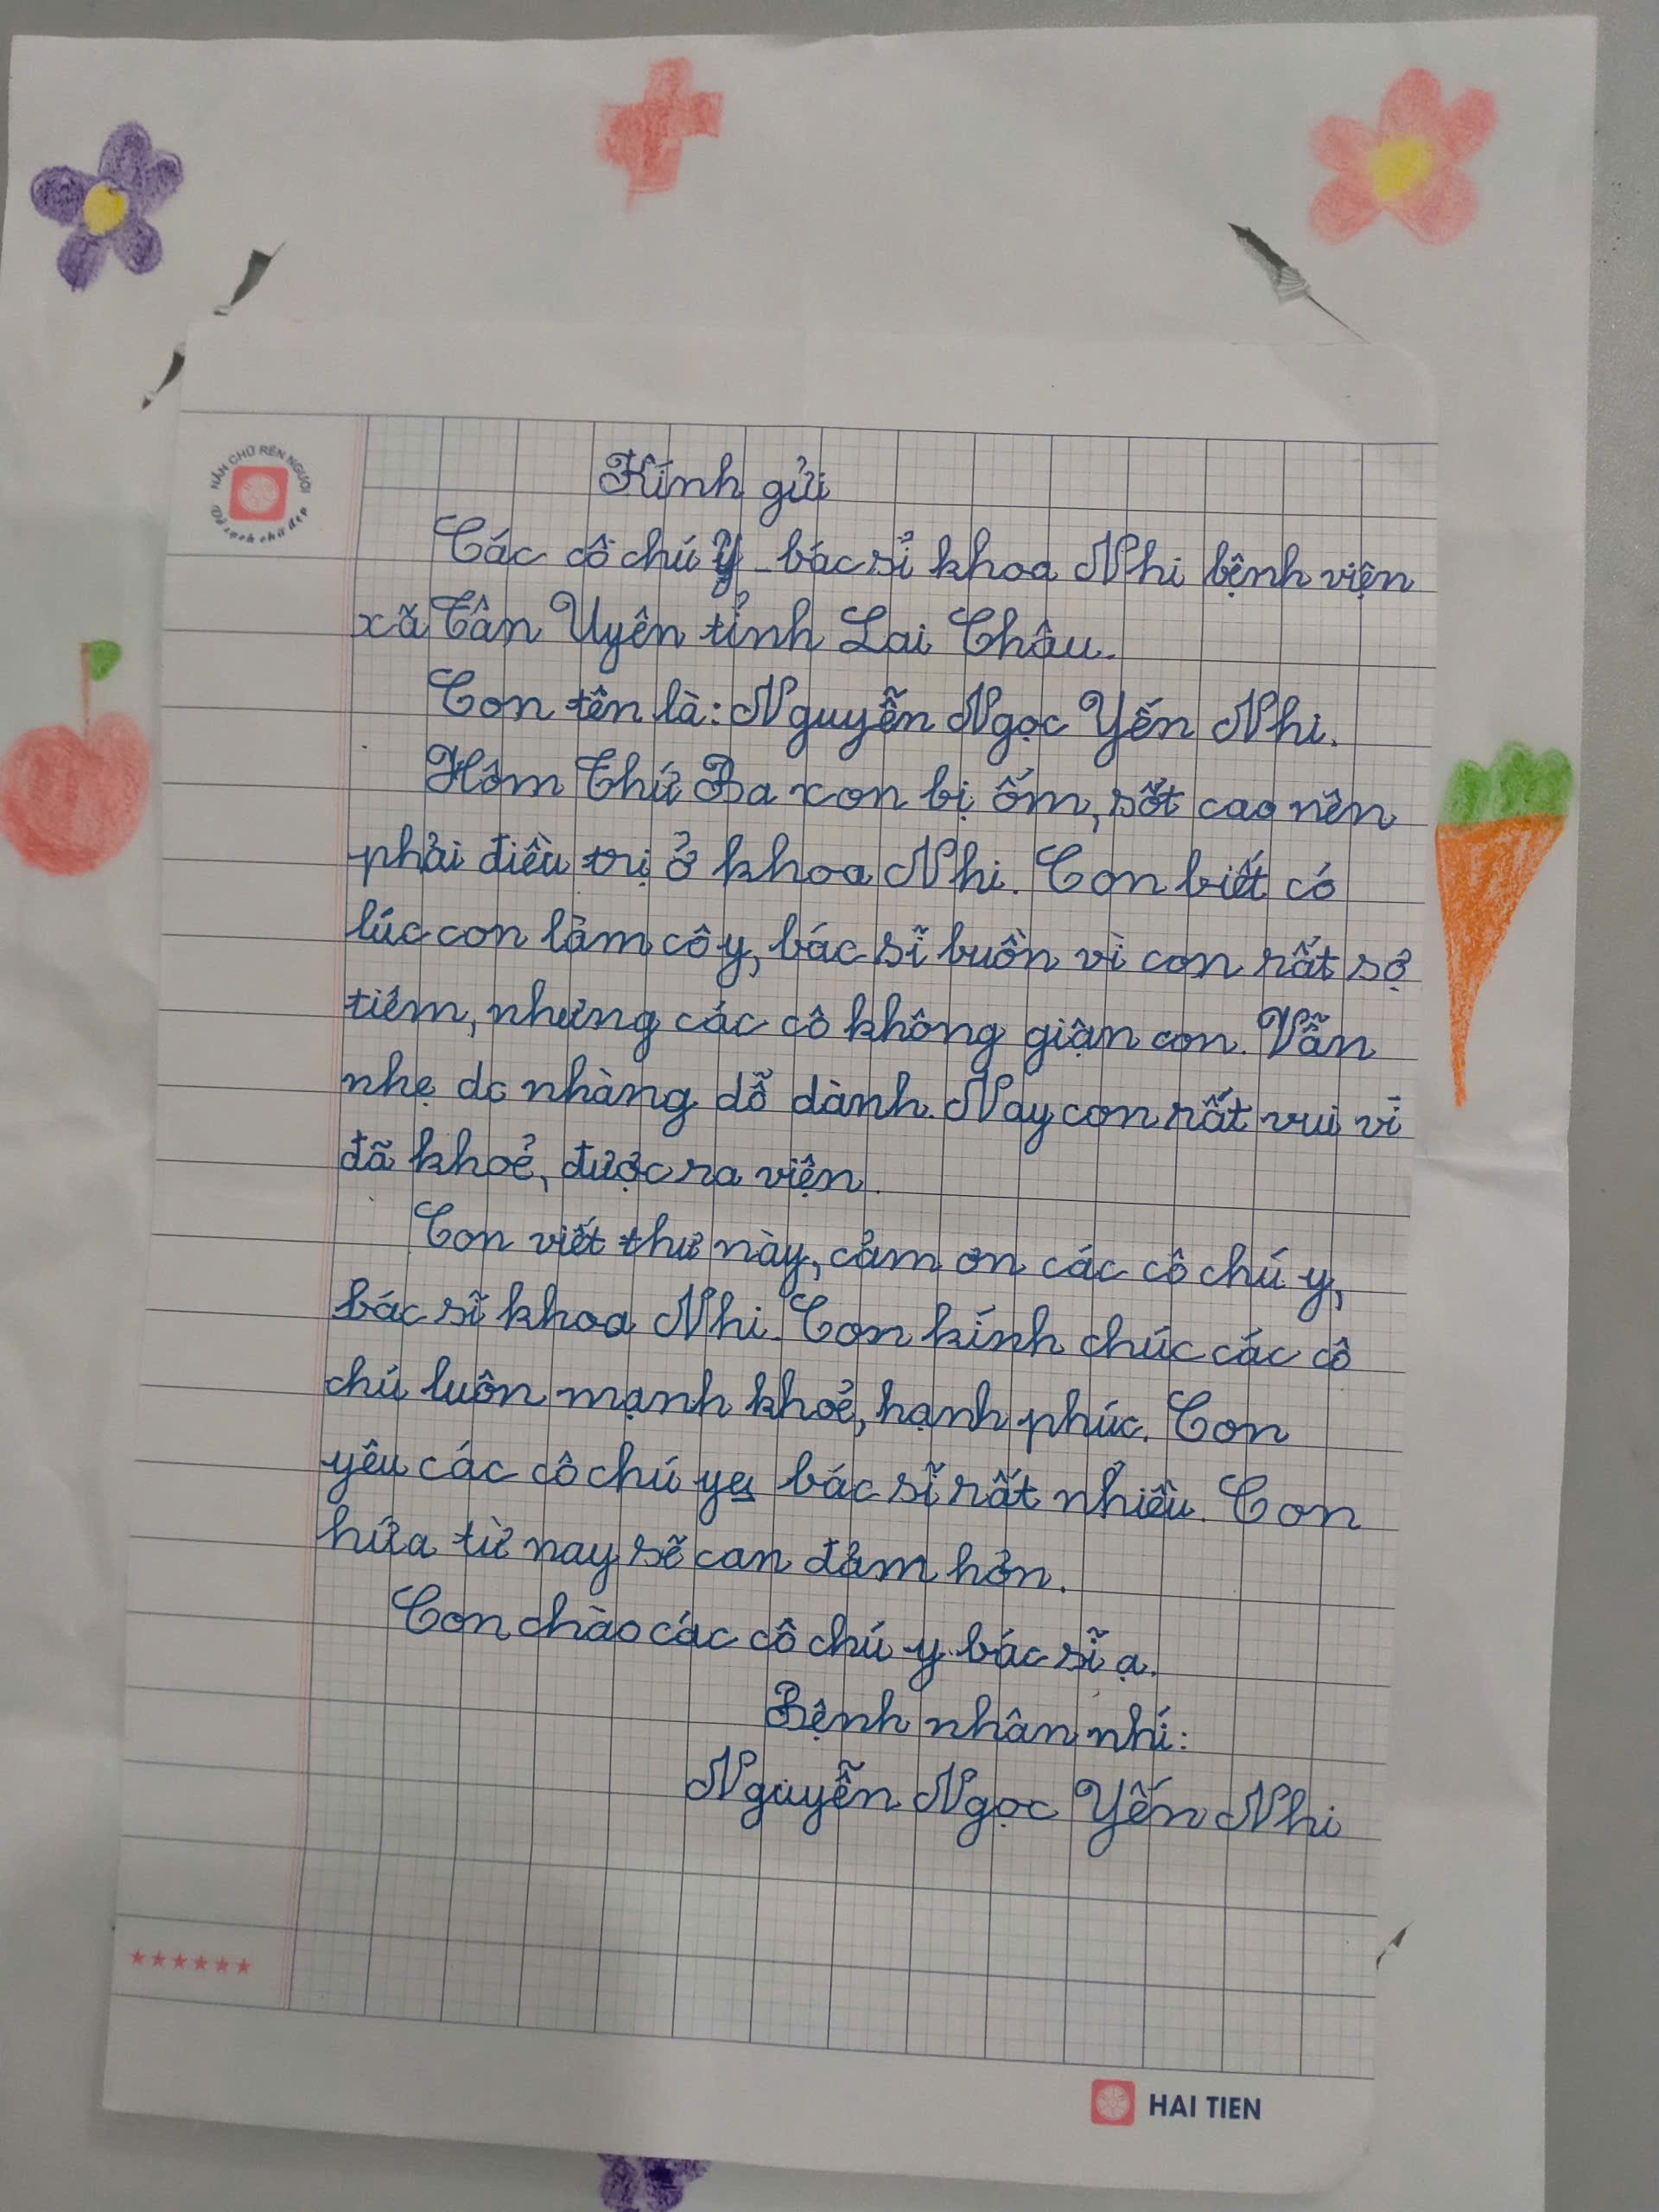 NẮN CHỮ RÈN NGƯỜI
Vở sạch chữ đẹp
Kính gửi
Các cô chú y bác sỉ khoa Nhi bệnh viện
xã Tân Uyên tỉnh Lai Châu.
Con tên là: Nguyễn Ngọc Yến Nhi.
Hôm Thứ Ba con bị ốm, sốt cao nên
phải điều trị ở khoa Nhi. Con biết có
lúc con làm cô y, bác sĩ buồn vì con rất sợ
tiêm, nhưng các cô không giận con. Vẫn
nhẹ dc nhàng dỗ dành. Nay con rất vui vì
đã khoẻ, được ra viện.
Con viết thư này, cảm ơn các cô chú y,
bác sĩ khoa Nhi. Con kính chúc các cô
chú luôn mạnh khoẻ, hạnh phúc. Con
yêu các cô chú y bác sĩ rất nhiều. Con
hứa từ nay sẽ can đảm hơn.
Con chào các cô chú y bác sĩ ạ.
Bệnh nhân nhí:
Nguyễn Ngọc Yến Nhi
HAI TIEN